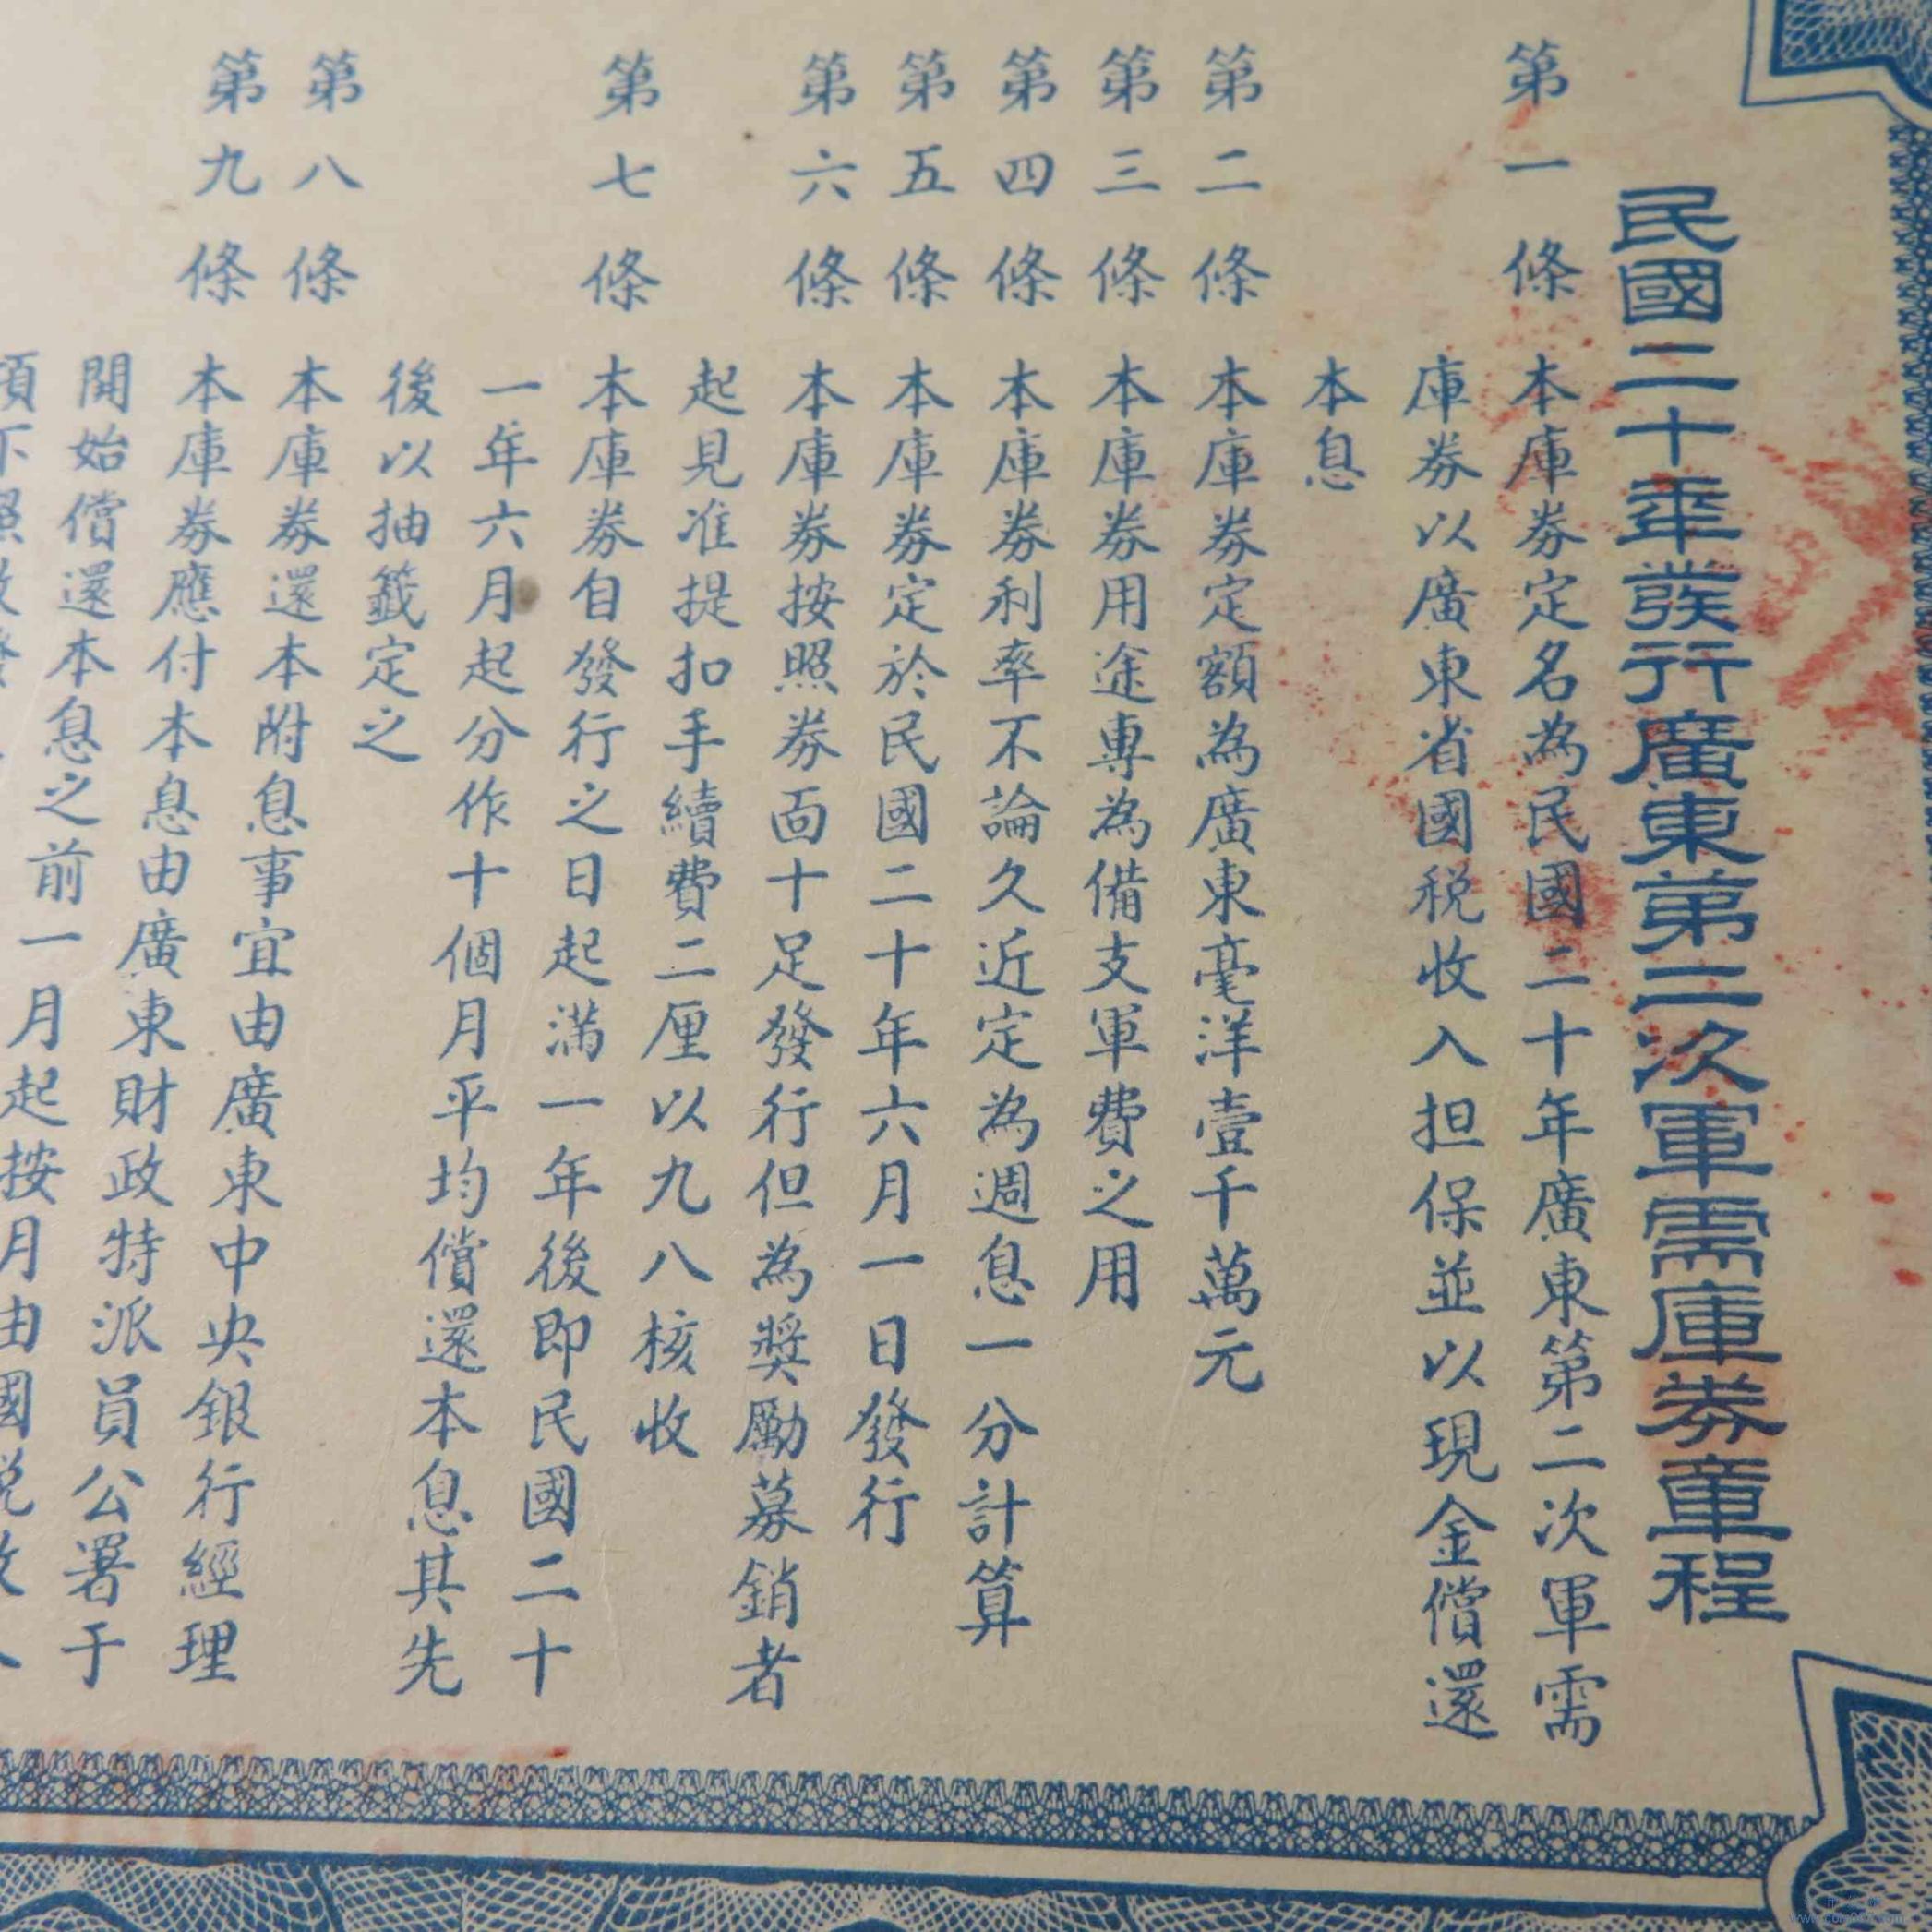 民國二十年發行廣東第二次軍需庫券章程
第一條 本庫券定名為民國二十年廣東第二次軍需
庫券以廣東省國税收入担保並以現金償還
本息
第二條 本庫券定額為廣東毫洋壹千萬元
第三條 本庫券用途專為備支軍費之用
第四條 本庫券利率不論久近定為週息一分計算
第五條 本庫券定於民國二十年六月一日發行
第六條 本庫券按照券面十足發行但為獎勵募銷者
起見准提扣手續費二厘以九八核收
第七條 本庫券自發行之日起滿一年後即民國二十
一年六月起分作十個月平均償還本息其先
後以抽籤定之
第八條 本庫券還本附息事宜由廣東中央銀行經理
第九條 本庫券應付本息由廣東財政特派員公署于
開始償還本息之前一月起按月由國税收入
項下照